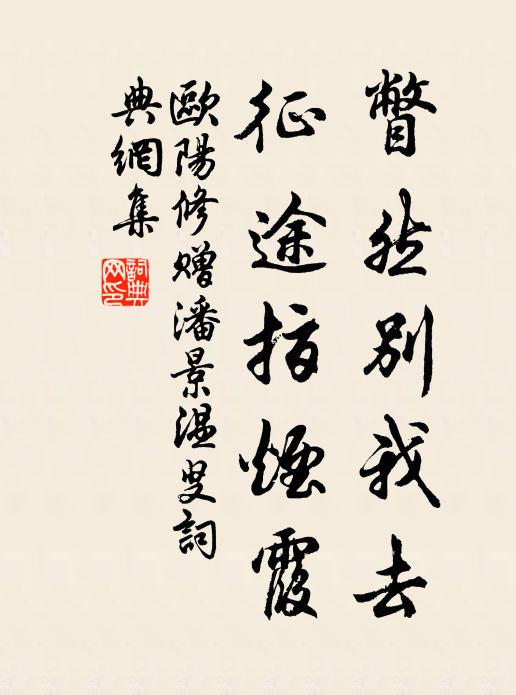 瞥然別我去
征途指煙霞
歐陽修贈潘景溫叟詞
典網集
詞典
网印